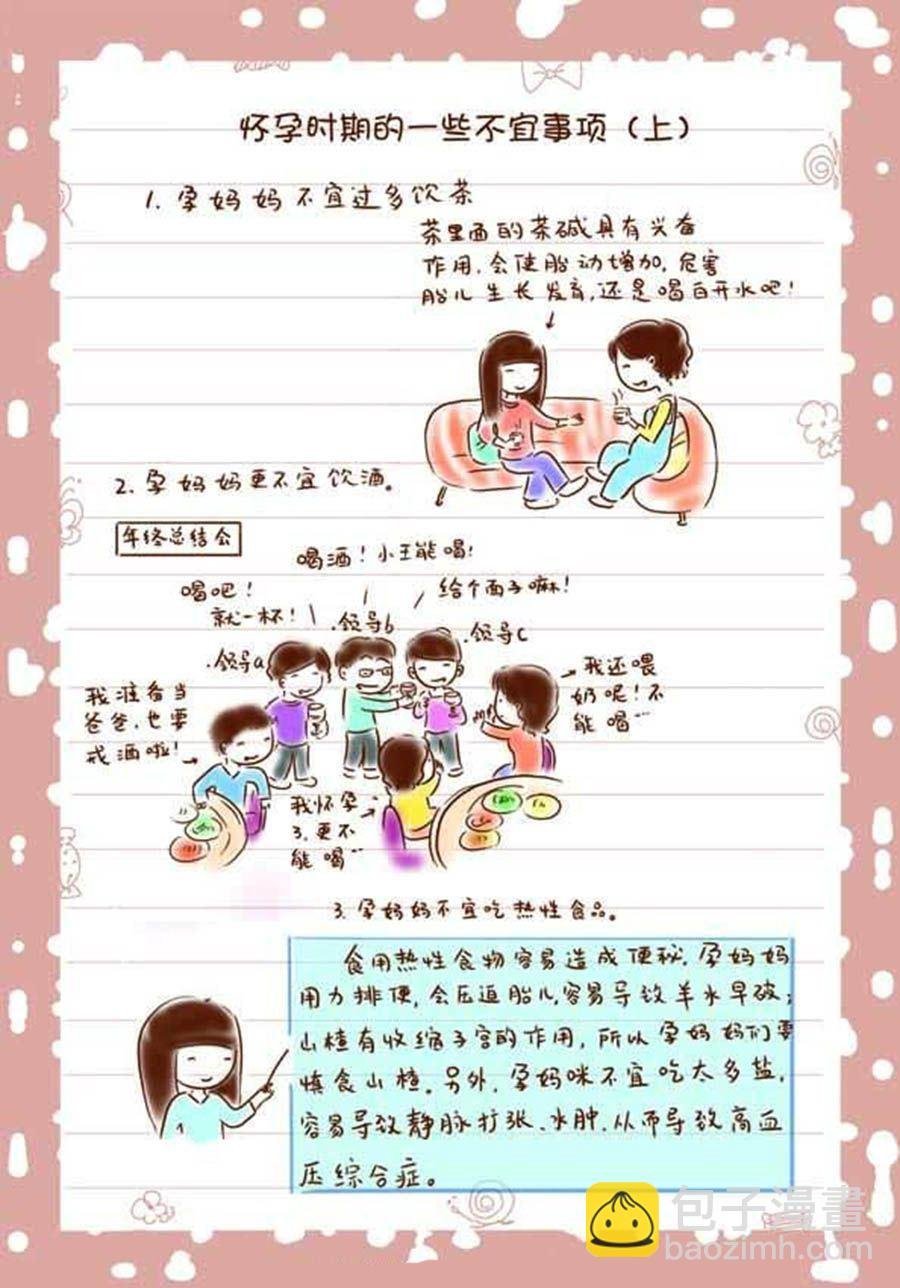 怀孕时期的一些不宜事项（上）
1. 孕妈妈不宜过多饮茶
茶里面的茶碱具有兴奋
作用，会使胎动增加，危害
胎儿生长发育，还是喝白开水吧！
2. 孕妈妈更不宜饮酒。
年终总结会
喝酒！小王能喝！
喝吧！
就一杯！
给个面子嘛！
.领导a
.领导b
.领导c
我准备当
爸爸，也要
戒酒啦！
我还喂
奶呢！不
能喝…
我怀孕
3，更不
能喝…
3. 孕妈妈不宜吃热性食品。
食用热性食物容易造成便秘，孕妈妈
用力排便，会压迫胎儿，容易导致羊水早破；
山楂有收缩子宫的作用，所以孕妈妈们要
慎食山楂。另外，孕妈咪不宜吃太多盐，
容易导致静脉扩张、水肿，从而导致高血
压综合症。
包子漫畫
baozimh.com